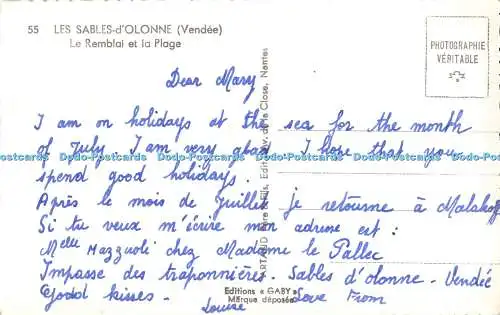 55 LES SABLES-d'OLONNE (Vendée)
Le Remblai et la Plage
PHOTOGRAPHIE
VÉRITABLE
Dear Mary
I am on holidays at the sea for the month
of July. I am very glad. I hope that you
Dodo-Postcards Dodo-Postcards Dodo-Postcards Dodo-Postcards Dodo-Postcards Dodo-Postcards
spend good holidays.
Après le mois de Juillet je retourne à Malakoff
Si tu veux m'écrire mon adresse est :
Melle Mazzuoli chez Madame le Pallec
Impasse des traponnières. Sables d'olonne. Vendée
Godd kisses. Love From
Louise
Editions « GABY »
Marque déposée
ARTAUD Père & Fils, Edit. Nantes